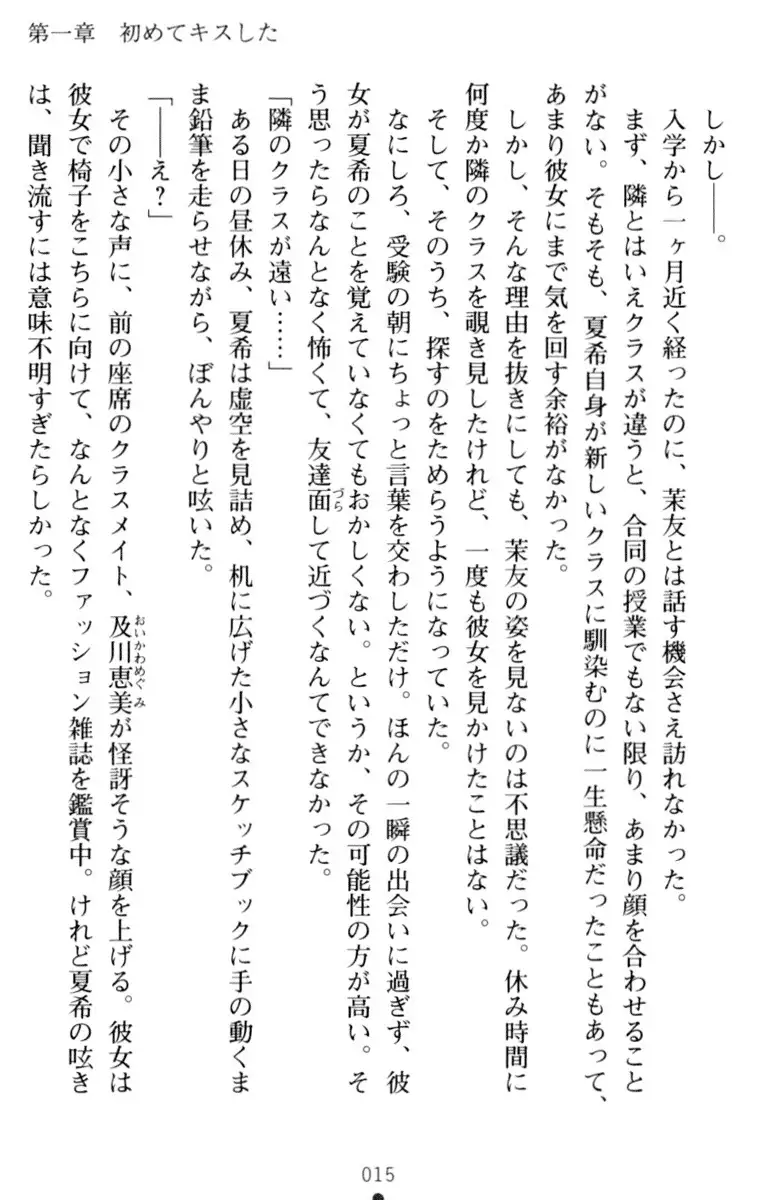 第一章　初めてキスした
しかし――。
入学から一ヶ月近く経ったのに、茉友とは話す機会さえ訪れなかった。
まず、隣とはいえクラスが違うと、合同の授業でもない限り、あまり顔を合わせること
がない。そもそも、夏希自身が新しいクラスに馴染むのに一生懸命だったこともあって、
あまり彼女にまで気を回す余裕がなかった。
しかし、そんな理由を抜きにしても、茉友の姿を見ないのは不思議だった。休み時間に
何度か隣のクラスを覗き見したけれど、一度も彼女を見かけたことはない。
そして、そのうち、探すのをためらうようになっていた。
なにしろ、受験の朝にちょっと言葉を交わしただけ。ほんの一瞬の出会いに過ぎず、彼
女が夏希のことを覚えていなくてもおかしくない。というか、その可能性の方が高い。そ
う思ったらなんとなく怖くて、友達面づらして近づくなんてできなかった。
「隣のクラスが遠い……」
ある日の昼休み、夏希は虚空を見詰め、机に広げた小さなスケッチブックに手の動くま
ま鉛筆を走らせながら、ぼんやりと呟いた。
「――え？」
その小さな声に、前の座席のクラスメイト、及川恵美おいかわめぐみが怪訝そうな顔を上げる。彼女は
彼女で椅子をこちらに向けて、なんとなくファッション雑誌を鑑賞中。けれど夏希の呟き
は、聞き流すには意味不明すぎたらしかった。
015